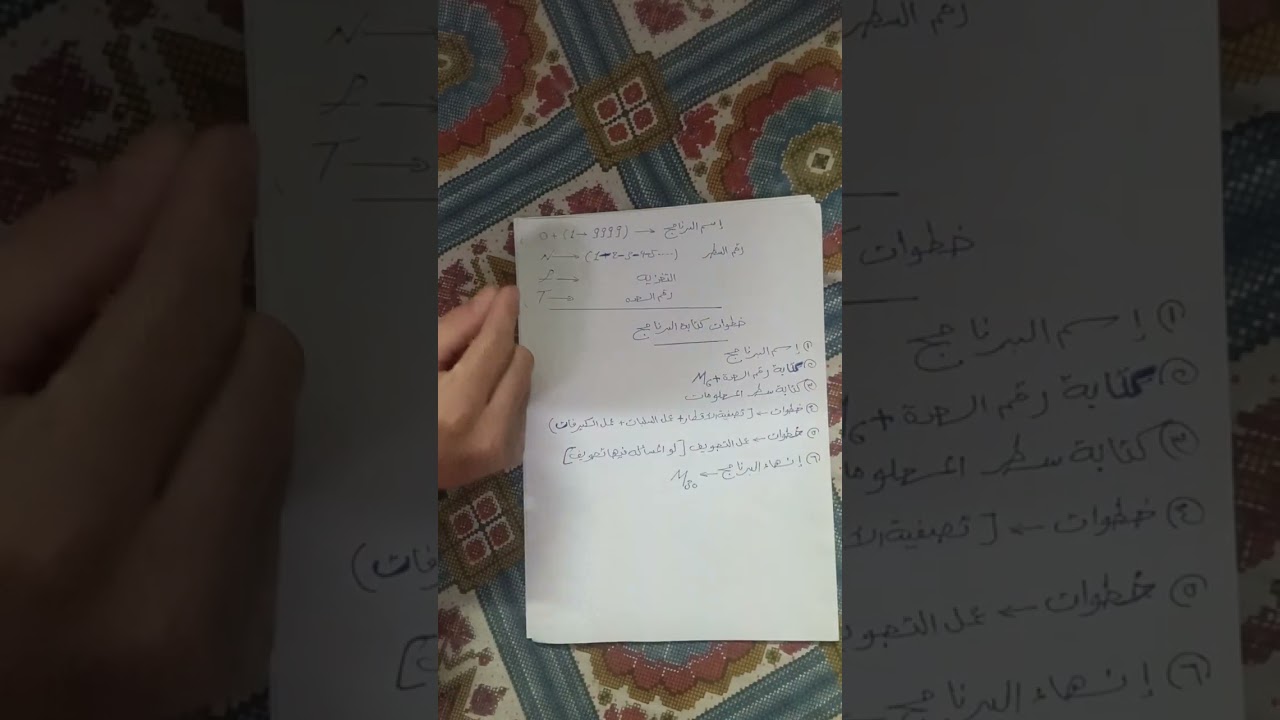 إسم البرنامج ← O + (1 → 9999)
رقم السطر (1-2-3-4-5.....) ← N
التغزيه ← F
رقم العده ← T
خطوات كتابة البرنامج
① إسم البرنامج
② كتابة رقم العدة + M6
③ كتابة سطر المعلومات
④ خطوات ← [تصفية الاقطار + عمل السلبات + عمل الكيرفات)
⑤ خطوات ← عمل التجويف [لو المسأله فيها تجويف]
⑥ إنهاء البرنامج ← M30